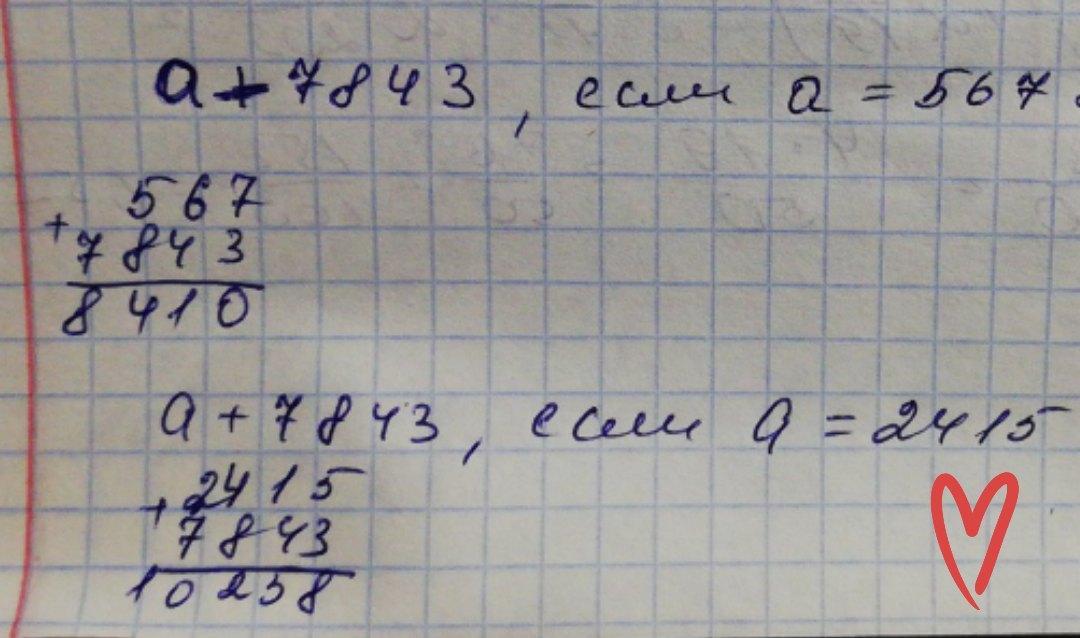 a + 7843, если a = 567
567
+
7843
8410
a + 7843, если a = 2415
2415
+
7843
10258